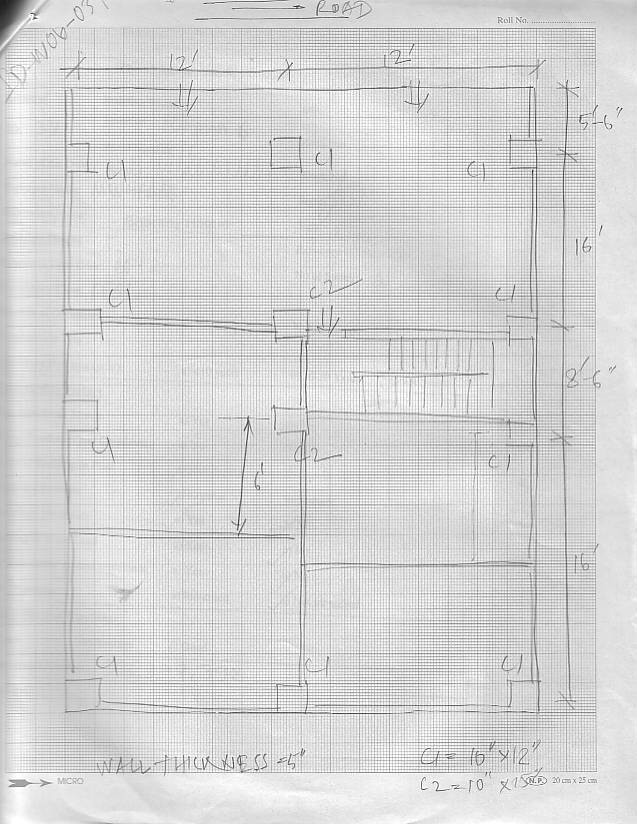 ROAD
Roll No.
12' 12'
5'-6"
C1 C1 C1
16'
C1 C2 C1
8'-6"
C1 C2 C1
6'
16'
C1 C1 C1
WALL THICKNESS = 5"
C1 = 10" X 12"
C2 = 10" X 15"
MICRO N.P. 20 cm x 25 cm